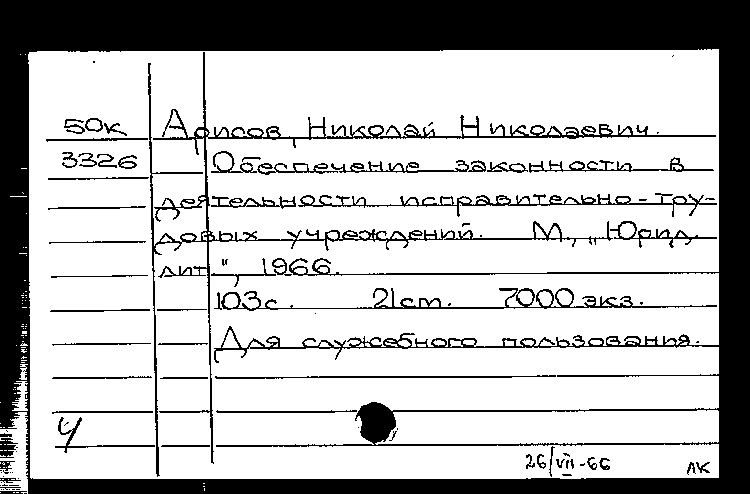 50к Арисов, Николай Николаевич.
3326 Обеспечение законности в
деятельности исправительно-тру-
довых учреждений. М., „Юрид.
лит.", 1966.
103с. 21 cm. 7000 экз.
Для служебного пользования.
26/VII-66 ЛК